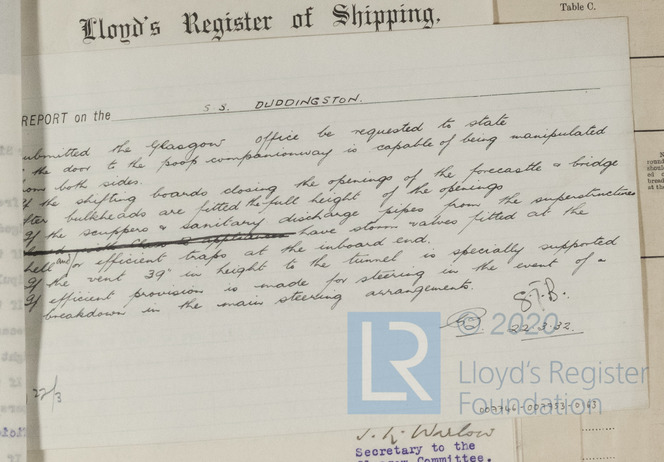 Lloyd's Register of Shipping.
Table C.
REPORT on the S.S. DUDDINGSTON.
ubmitted the Glasgow office be requested to state
the door to the poop companionway is capable of being manipulated
om both sides.
If the shifting boards closing the openings of the forecastle & bridge
fter bulkheads are fitted the full height of the openings
If the scuppers & sanitary discharge pipes from the superstructures
have storm valves fitted at the
hell and/or efficient traps at the inboard end.
If the vent 39" in height to the tunnel is specially supported
If efficient provision is made for steering in the event of a
breakdown in the main steering arrangements.
S.F.B.
22.3.32.
22/3
© 2020
LR
Lloyd's Register
Foundation
003746-003753-0163
Secretary to the
Committee.